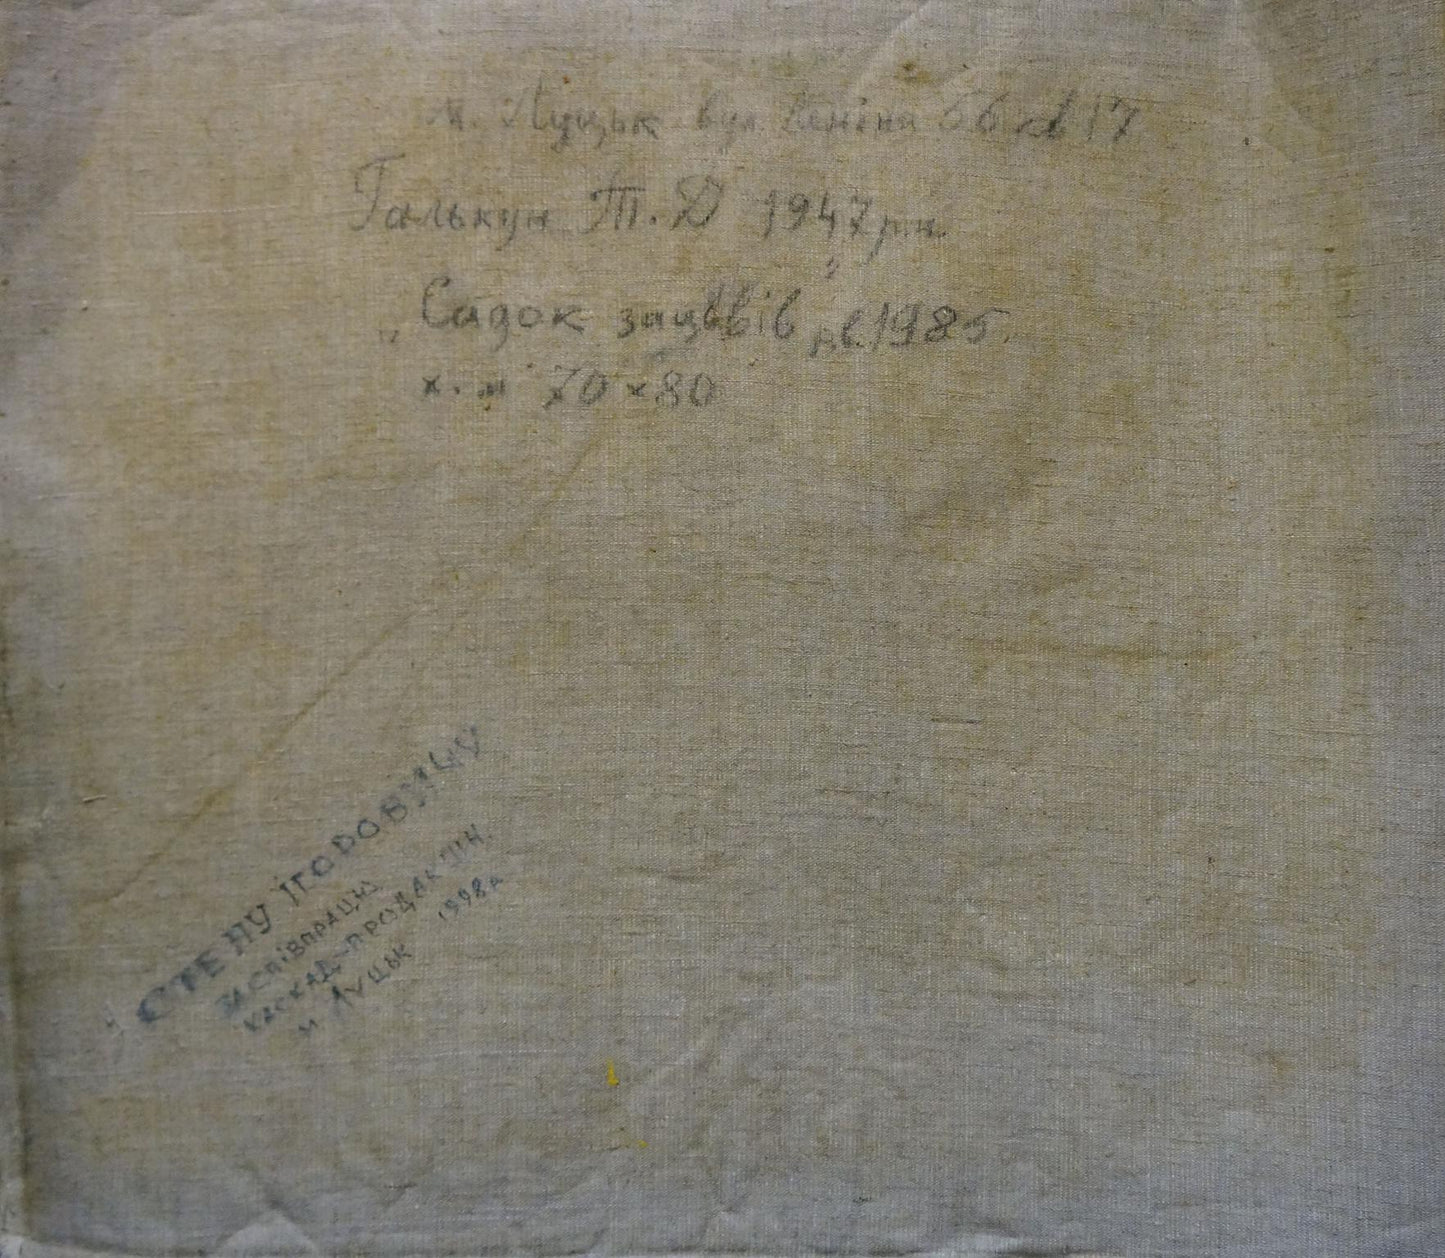 м. Луцьк вул. Леніна 66 17
Галькун Т. Д 1947 р.н
„Садок зацввів" 1985.
х. м 70 х 80
СТЕПУ ІГОРОВИЧУ
ЗА СПІВПРАЦЮ
КАСКАД-ПРОДАКШН.
м ЛУЦЬК 1998р